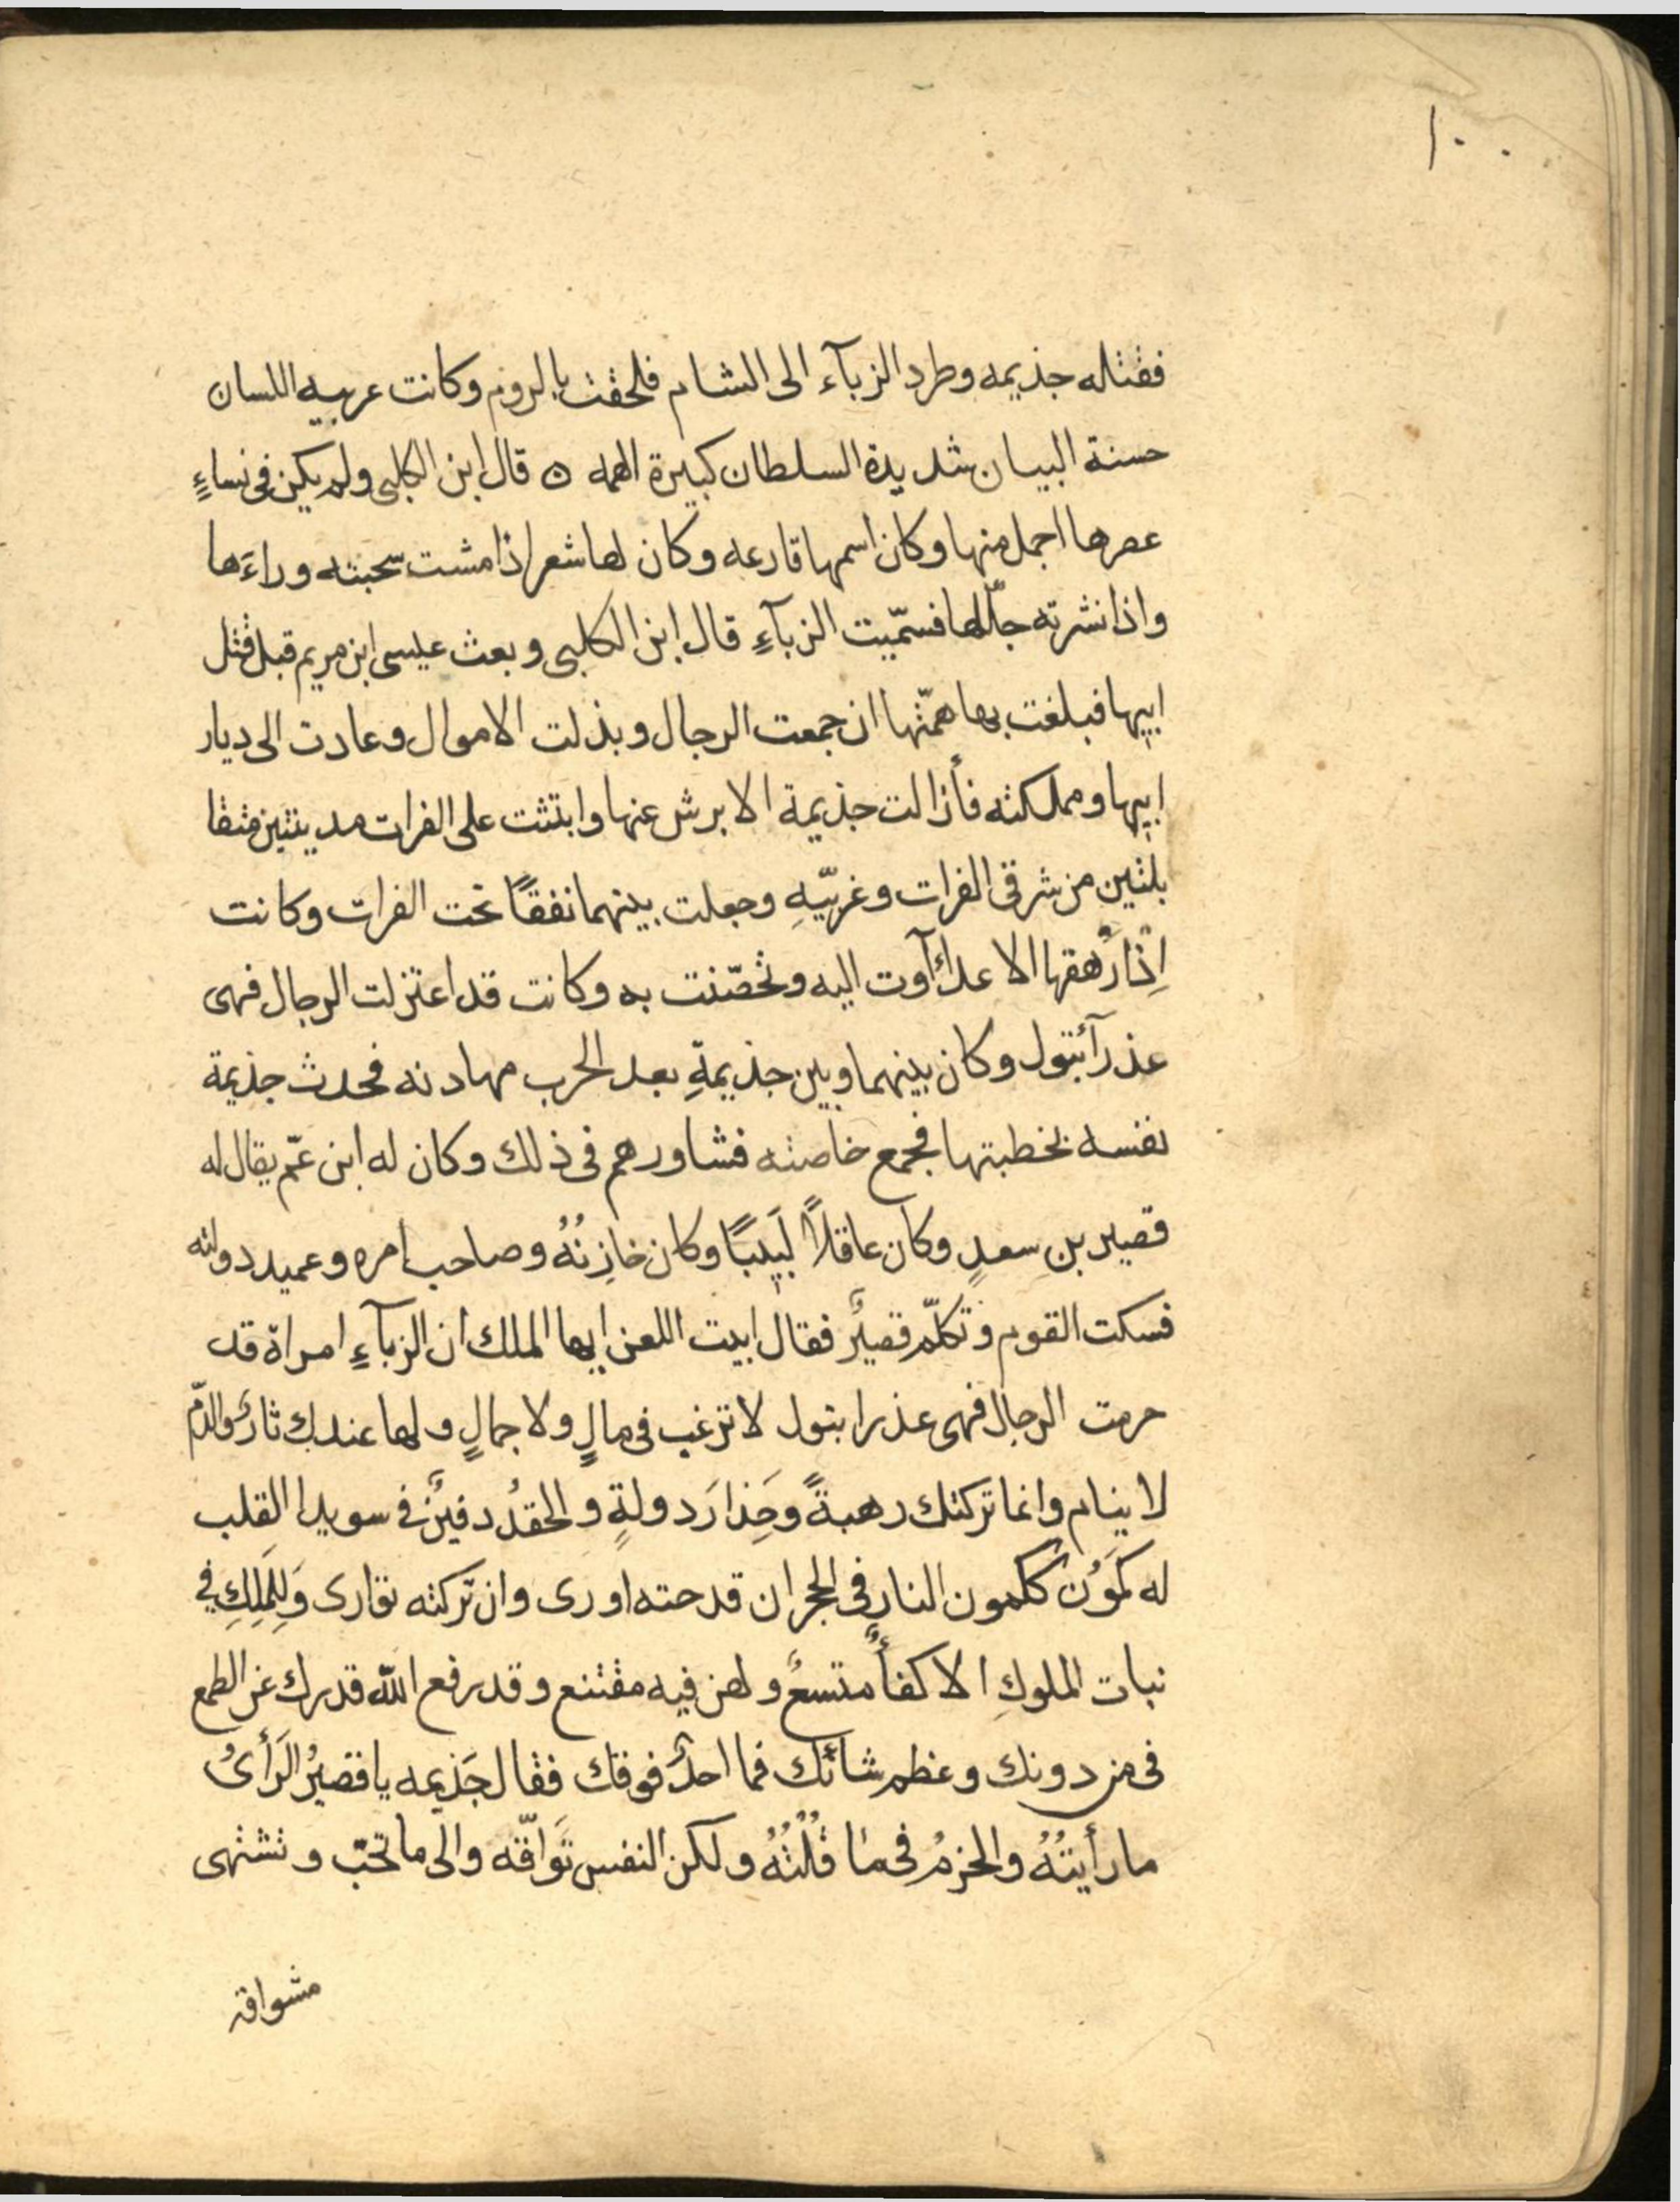 ١٠٠
فقتله جذيمه وطرد الزبآء الى الشام فلحقت بالروم وكانت عربيه اللسان
حسنة البيان شديدة السلطان كبيرة الهمه ٥ قال ابن الكلبى ولم يكن فى نساءٍ
عصرها اجمل منها وكان اسمها قارعه وكان لها شعر اذا مشت سحبته وراءَها
واذا نشرته جلّلها فسمّيت الزبآءِ قال ابن الكلبى وبعث عيسى ابن مريم قبل قتل
ابيها فبلغت بها همّتها ان جمعت الرجال وبذلت الاموال وعادت الى ديار
ابيها ومملكته فأزالت جذيمة الابرش عنها وابتثت على الفرات مدينتين متقا
بلتين من شرقى الفرات وغربيّهِ وجعلت بينهما نفقًا تحت الفرات وكانت
اِذْا رْهقها الاعدآء آوت اليه وتحصّنت به وكانت قد اعتزلت الرجال فهى
عذرآء بتول وكان بينهما وبين جذيمةِ بعد الحرب مهادنه فحدث جذيمة
نفسه بخطبتها فجمع خاصته فشاورهم فى ذلك وكان له ابن عمّ يقال له
قصير بن سعدٍ وكان عاقلاً لَبيبًا وكان خازِنُهُ وصاحب امره وعميد دولته
فسكت القوم وتكلّم قصيرٌ فقال ابيت اللعن ايها الملك ان الزبآءِ امراة قد
حرمت الرجال فهى عذرا بتول لا ترغب فى مالٍ ولا جمالٍ ولها عندك ثارٌ والدّم
لا ينام وانما تركتك رهبةً وحَذارَ دولةٍ والحقدُ دفينٌ فى سويدا القلب
له كَمَوُن ككمون النارِ فى الحجر ان قدحته اورى وان تركته توارى وَلِلمَلِكِ فى
نبات الملوكِ الاكفأٌ متسعٌ ولهن فيه مقتنع وقد رفع الله قدرك عن الطمع
فى من دونك وعظم شائنك فما احدٌ فوقك فقال جَذيمه يا قصيرُ الَرأىُ
ما رأيتُهُ والحزمُ فى مٰا قُلْتُهُ ولكن النفس تَواقّه والى ما تحبّ وتشتهى
مشواقة